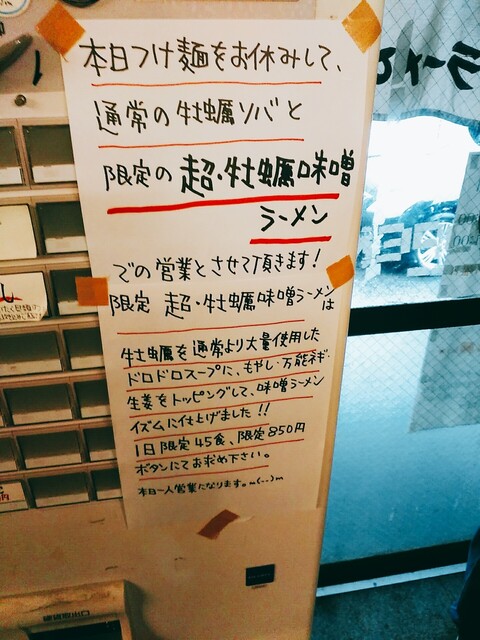 本日つけ麺をお休みして、
通常の牡蠣ソバと
限定の 超・牡蠣味噌
ラーメン
での営業とさせて頂きます!
限定 超・牡蠣味噌ラーメンは
牡蠣を通常より大量使用した
ドロドロスープに、もやし・万能ネギ・
生姜をトッピングして、味噌ラーメン
イズムに仕上げました!!
1日限定45食、限定850円
ボタンにてお求め下さい。
本日一人営業になります。m(--)m